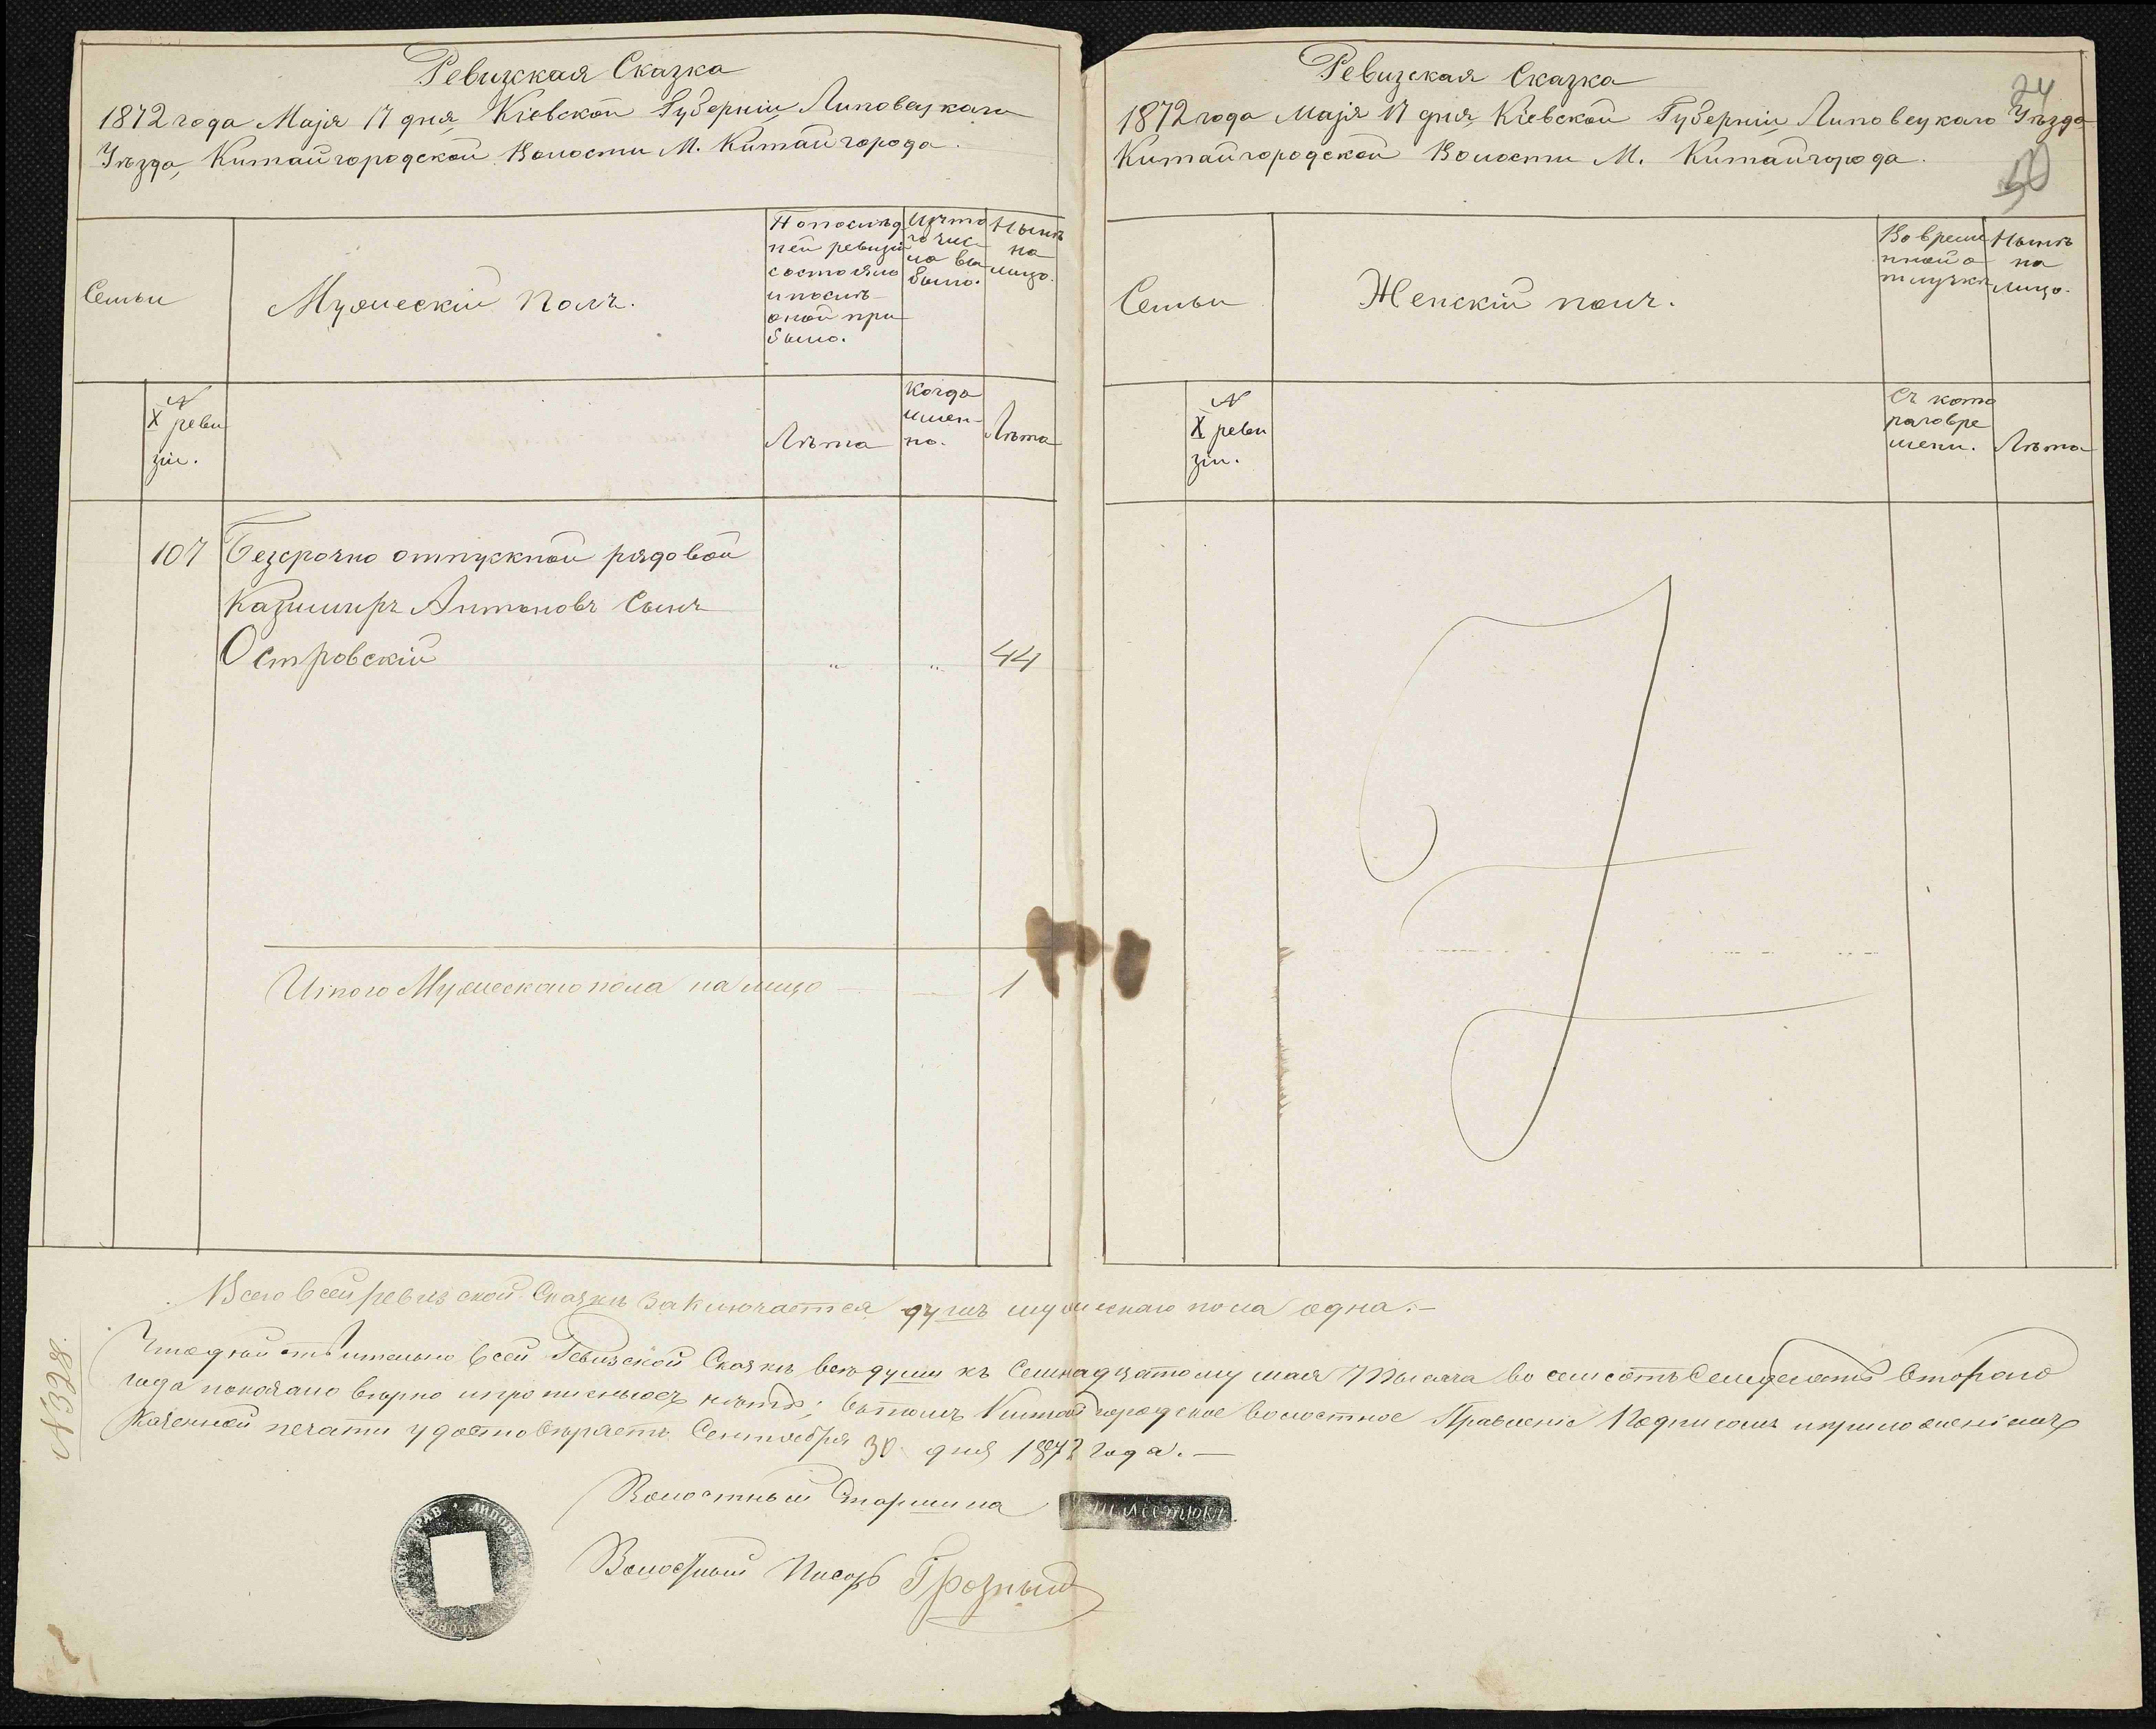 Ревизская Сказка
1872 года Маія 17 дня, Кіевской Губерніи, Липовецкаго
Уѣзда, Китайгородской Волости М. Китайгорода.
Семьи
Мужескій Полъ.
По послѣд
ней ревизіи
состояло
и послѣ
оной при
было.
Изъ то
го чис
ла вы
было.
Нынѣ
на
лицо.
№
X реви
зіи.
Лѣта
Когда
имен-
но.
Лѣта
107
Безсрочно отпускной рядовой
Казимиръ Антоновъ Сынъ
Островскій
"
"
44
Итого Мужескаго пола на лицо
1
Ревизская Сказка
24
1872 года Маія 17 дня, Кіевской Губерніи, Липовецкаго Уѣзда
Китайгородской Волости М. Китайгорода.
Семьи
Женскій полъ.
Во време
нной о
тлучкѣ
Нынѣ
на
лицо.
№
X реви
зіи.
Съ кото
раго вре
мени.
Лѣта
Всего в сей ревизской Сказкѣ заключается душъ мужескаго пола одна.-
Что дѣйствительно в сей Ревизской Сказкѣ всѣ души къ Семнадцатому мая Тысяча восемсотъ Семдесятъ второго
года показано вѣрно и прописныхъ нѣтъ; въ томъ Китайгородское волостное Правленіе Подписомъ и приложеніемъ
Казенной печати удостовѣряетъ Сентября 30 дня 1872 года.-
№ 328.
Волостный Старшина
Волостный Писарь Грозный